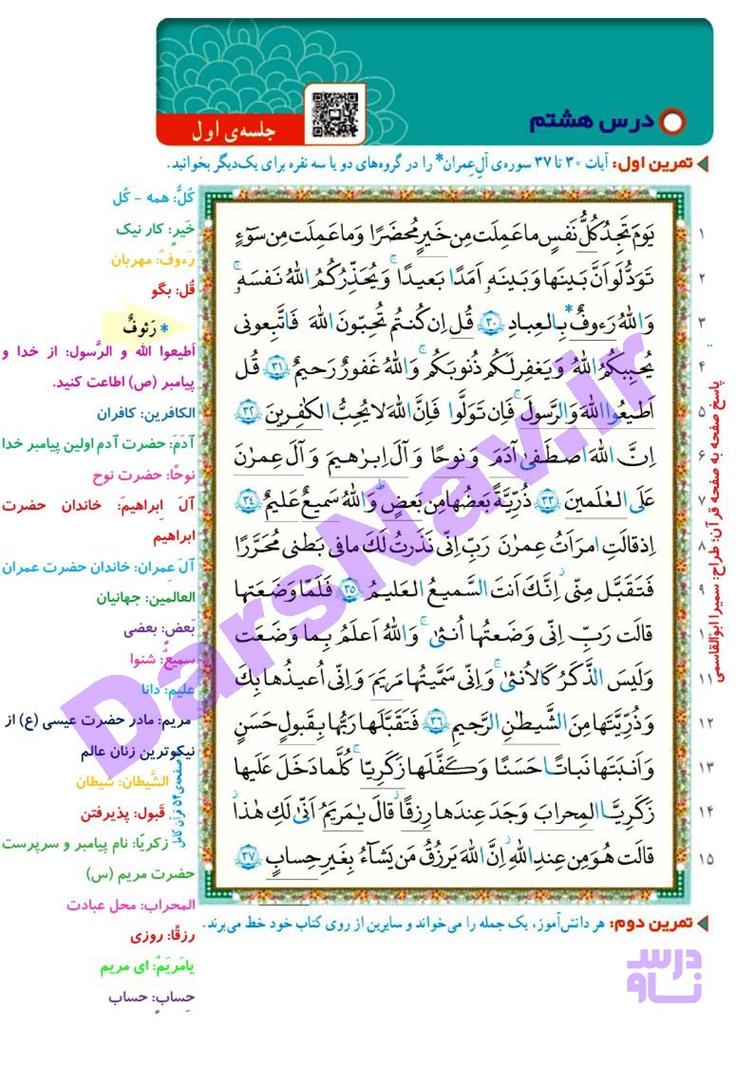 درس هشتم
جلسه‌ی اول
تمرین اول: آیات ۳۰ تا ۳۷ سوره‌ی آلِ عِمران* را در گروه‌های دو یا سه نفره برای یک‌دیگر بخوانید.
۱ یَومَ تَجِدُ کُلُّ نَفسٍ ما عَمِلَت مِن خَیرٍ مُحضَرًا وَ ما عَمِلَت مِن سوءٍ
۲ تَوَدُّ لَو اَنَّ بَینَها وَ بَینَهٗ اَمَدًا بَعیدًا ۚ وَ یُحَذِّرُکُمُ اللّٰهُ نَفسَهٗ ۚ
۳ وَ اللّٰهُ رَءوفٌ* بِالعِبادِ ۳۰ قُل اِن کُنتُم تُحِبّونَ اللّٰهَ فَاتَّبِعونی
۴ یُحبِبکُمُ اللّٰهُ وَ یَغفِر لَکُم ذُنوبَکُم ۚ وَ اللّٰهُ غَفورٌ رَحیمٌ ۳۱ قُل
۵ اَطیعُوا اللّٰهَ وَ الرَّسولَ ۚ فَاِن تَوَلَّوا فَاِنَّ اللّٰهَ لا یُحِبُّ الکٰفِرینَ ۳۲
۶ اِنَّ اللّٰهَ اصطَفیٰ آدَمَ وَ نوحًا وَ آلَ اِبراهیمَ وَ آلَ عِمرٰنَ
۷ عَلَی العٰلَمینَ ۳۳ ذُرِّیَّةً بَعضُها مِن بَعضٍ ۗ وَ اللّٰهُ سَمیعٌ عَلیمٌ ۳۴
۸ اِذ قالَتِ امرَاَتُ عِمرٰنَ رَبِّ اِنّی نَذَرتُ لَکَ ما فی بَطنی مُحَرَّرًا
۹ فَتَقَبَّل مِنّی ۖ اِنَّکَ اَنتَ السَّمیعُ العَلیمُ ۳۵ فَلَمّا وَضَعَتها
۱۰ قالَت رَبِّ اِنّی وَضَعتُها اُنثیٰ ۚ وَ اللّٰهُ اَعلَمُ بِما وَضَعَت
۱۱ وَ لَیسَ الذَّکَرُ کَالاُنثیٰ ۚ وَ اِنّی سَمَّیتُها مَریَمَ وَ اِنّی اُعیذُها بِکَ
۱۲ وَ ذُرِّیَّتَها مِنَ الشَّیطٰنِ الرَّجیمِ ۳۶ فَتَقَبَّلَها رَبُّها بِقَبولٍ حَسَنٍ
۱۳ وَ اَنبَتَها نَباتًا حَسَنًا وَ کَفَّلَها زَکَرِیّا ۚ کُلَّما دَخَلَ عَلَیها
۱۴ زَکَرِیَّا المِحرابَ وَجَدَ عِندَها رِزقًا ۖ قالَ یٰمَریَمُ اَنّیٰ لَکِ هٰذا ۖ
۱۵ قالَت هُوَ مِن عِندِ اللّٰهِ ۖ اِنَّ اللّٰهَ یَرزُقُ مَن یَشاءُ بِغَیرِ حِسابٍ ۳۷
تمرین دوم: هر دانش‌آموز، یک جمله را می‌خواند و سایرین از روی کتاب خود خط می‌برند.
کُلُّ: همه - کُل
خَیرٍ: کار نیک
رَءوفٌ: مهربان
قُل: بگو
* رَئوفٌ
اَطیعوا الله و الرَّسول: از خدا و
پیامبر (ص) اطاعت کنید.
الکافرین: کافران
آدَمَ: حضرت آدم اولین پیامبر خدا
نوحًا: حضرت نوح
آلَ اِبراهیمَ: خاندان حضرت
ابراهیم
آلَ عِمران: خاندان حضرت عمران
العالمین: جهانیان
بَعضٍ: بعضی
سَمیعٌ: شنوا
علیم: دانا
مریم: مادر حضرت عیسی (ع) از
نیکوترین زنان عالم
الشَّیطان: شیطان
قَبول: پذیرفتن
زکریّا: نام پیامبر و سرپرست
حضرت مریم (س)
المحراب: محل عبادت
رزقًا: روزی
یامَریَمُ: ای مریم
حِسابٍ: حساب
* صفحه‌ی ۵۴ قرآن کامل
پاسخ صفحه به صفحه قرآن: طراح: سمیرا ابوالقاسمی
DarsNav.ir
درس ناو